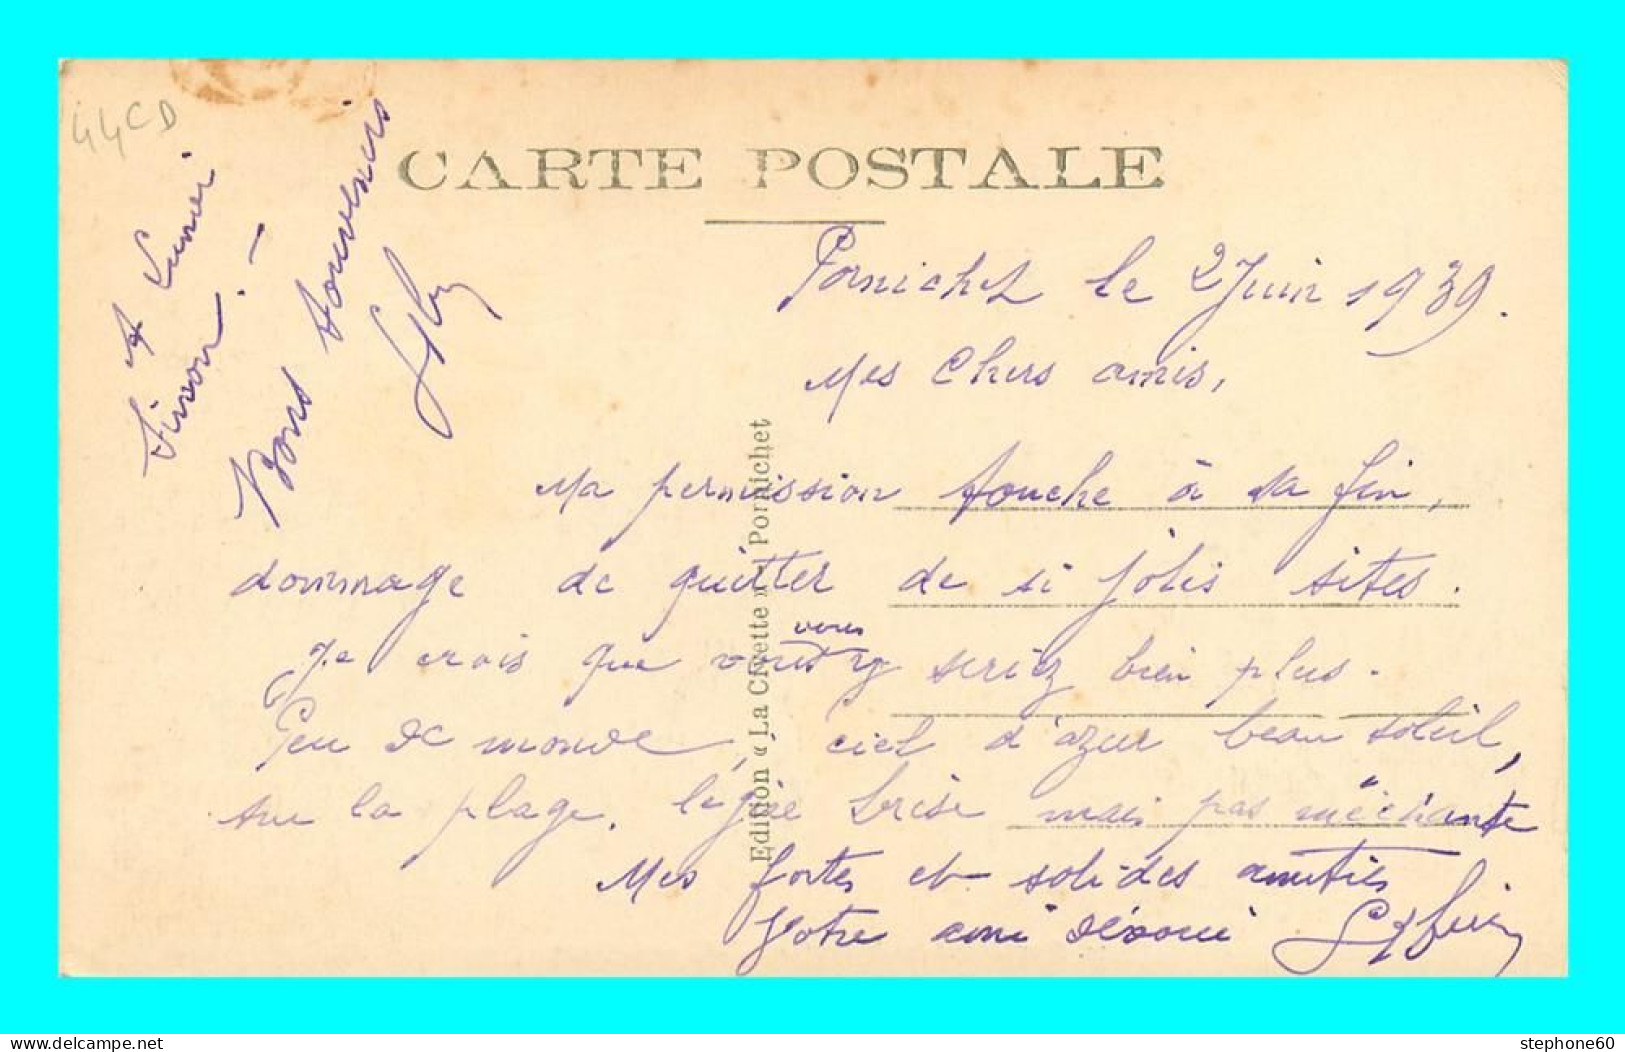 44CD
CARTE POSTALE
Bons souvenirs
Pornichet le 2 Juin 1939.
Mes Chers amis,
Ma permission touche à sa fin,
dommage de quitter de si jolis sites.
Je crois que vous y seriez bien plus.
vous
Peu de monde, ciel d'azur beau soleil,
sur la plage, légère brise mais pas méchante
Mes fortes et solides amitiés
Votre ami dévoué
Edition « La Civette » Pornichet
delcampe.net
stephone60